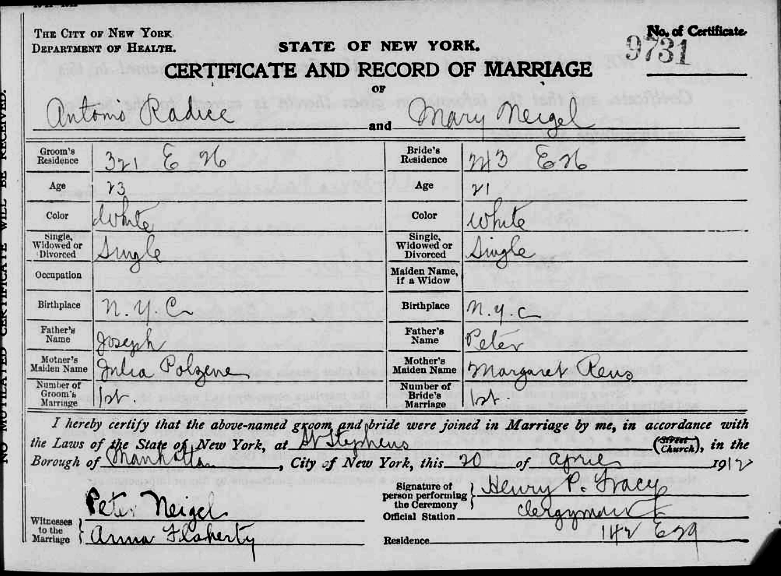 THE CITY OF NEW YORK
DEPARTMENT OF HEALTH.
No. of Certificate
9731
STATE OF NEW YORK.
CERTIFICATE AND RECORD OF MARRIAGE
OF
Antonio Radice and Mary Neigel
Groom's Residence 321 E 26 Bride's Residence 243 E 26
Age 23 Age 21
Color White Color White
Single, Widowed or Divorced Single Single, Widowed or Divorced Single
Occupation Maiden Name, if a Widow
Birthplace N.Y.C. Birthplace N.Y.C
Father's Name Joseph Father's Name Peter
Mother's Maiden Name Julia Mother's Maiden Name Margaret
Number of Groom's Marriage 1st. Number of Bride's Marriage 1st.
I hereby certify that the above-named groom and bride were joined in Marriage by me, in accordance with
the Laws of the State of New York, at St Stephens (Street Church), in the
Borough of Manhattan, City of New York, this 20 of April 1912
Signature of person performing the Ceremony Henry P. Tracy
Witnesses to the Marriage Peter Neigel
Official Station Clergyman
Anna Flaherty
Residence 142 E 29
NO MUTILATED CERTIFICATE WILL BE RECEIVED.